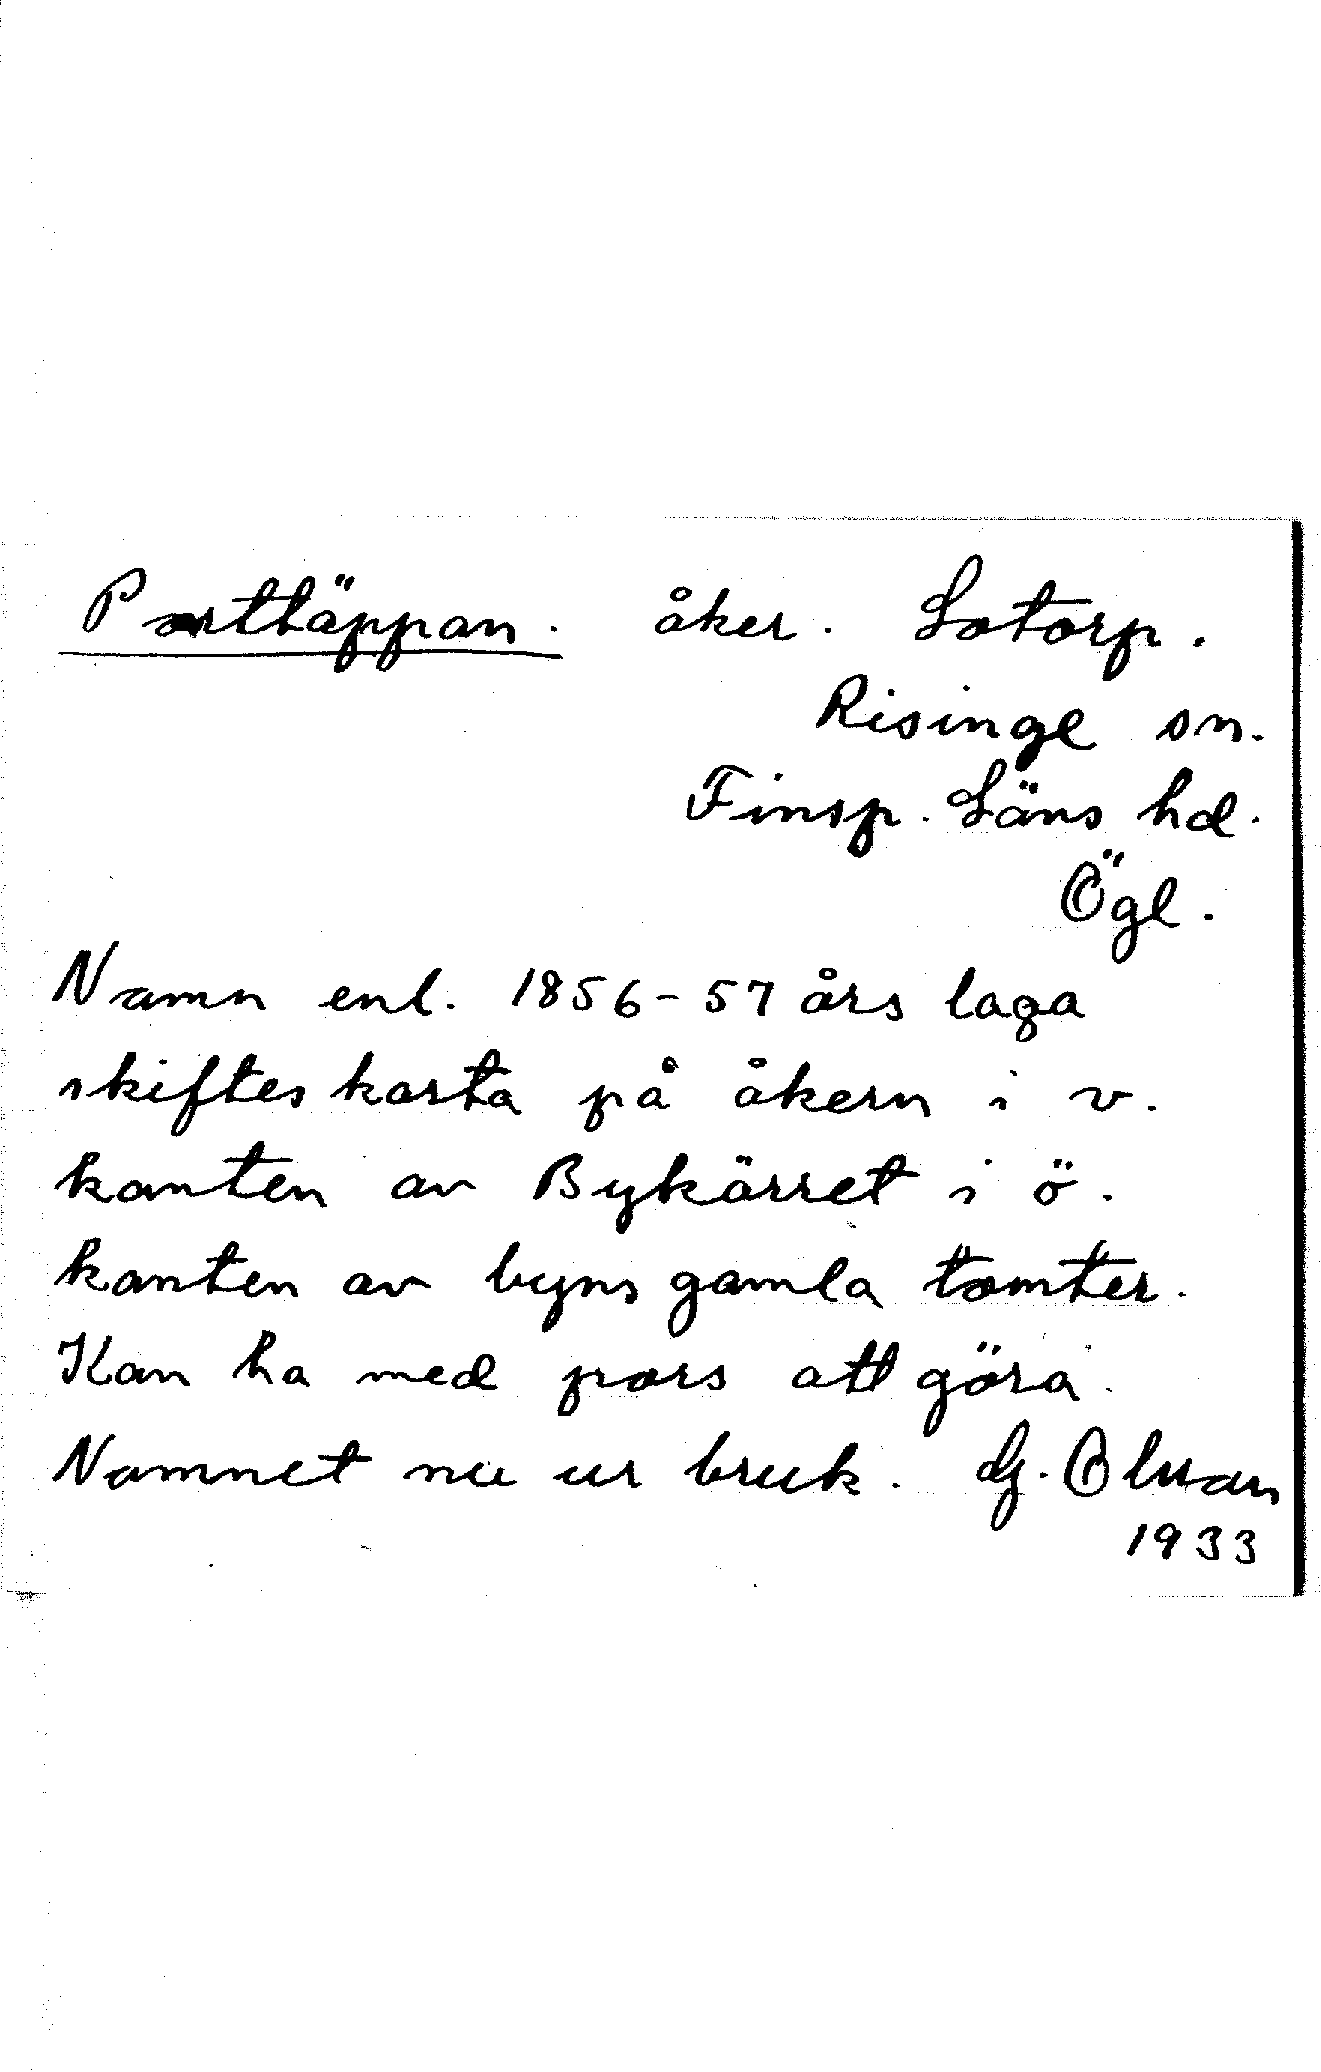 Porttäppan. åker. Lotorp.
Risinge sn.
Finsp. Läns hd.
Ögl.
Namn enl. 1856-57 års laga
skifteskarta på åkern i v.
kanten av Bykärret i ö.
kanten av byns gamla tomter.
Kan ha med pors att göra.
Namnet nu ur bruk. G. Olsson
1933